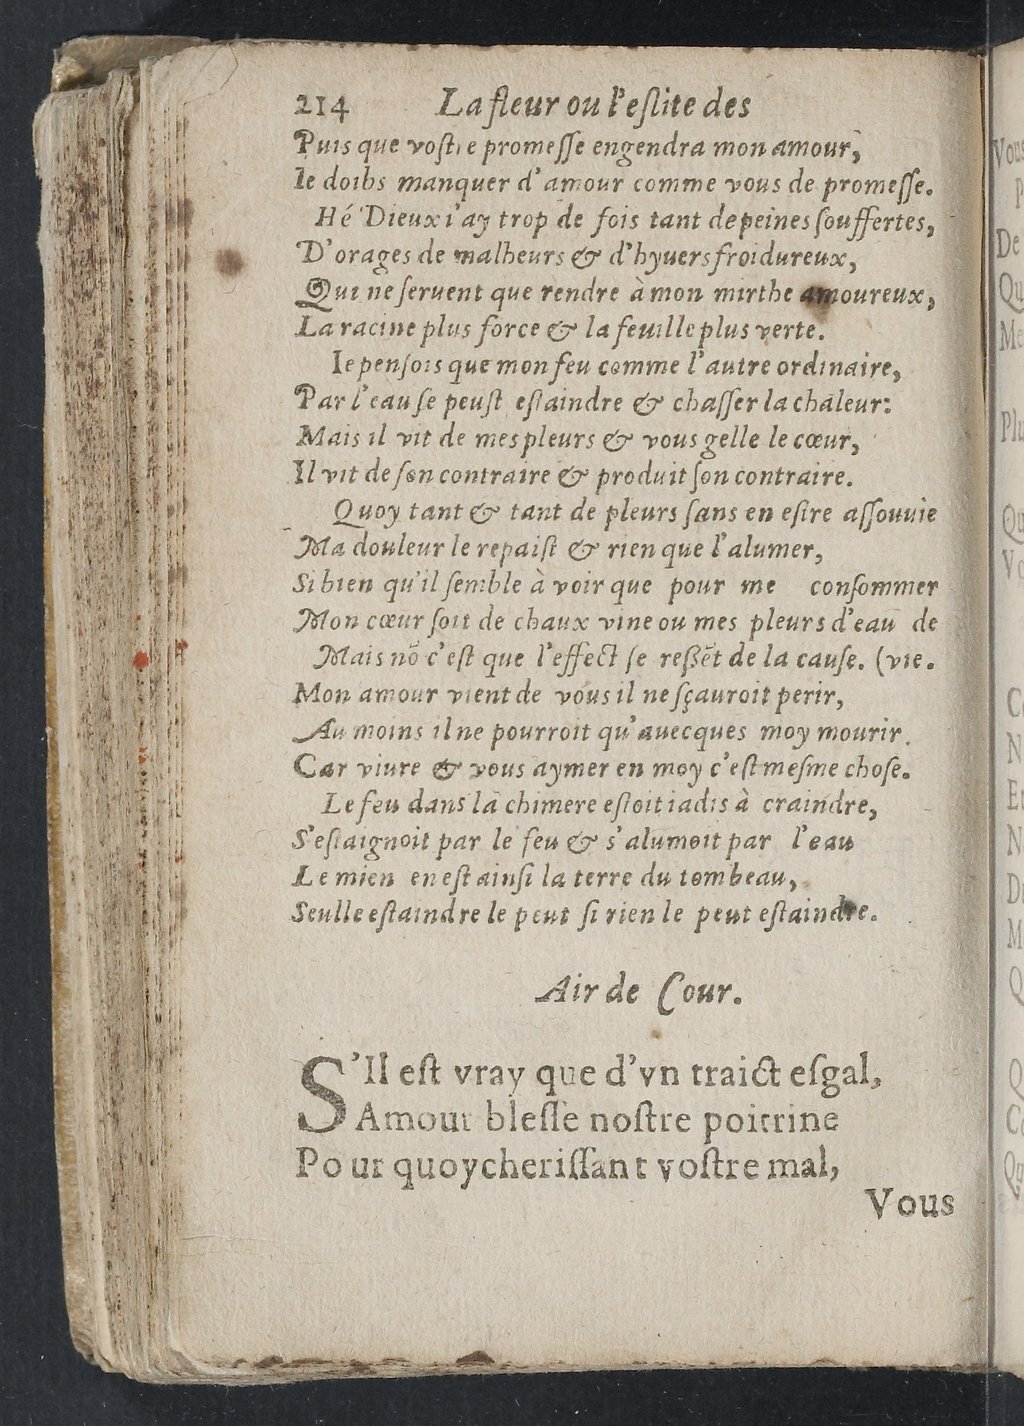 214 La fleur ou l'eſlite des
Puis que voſtre promeſſe engendra mon amour,
Ie doibs manquer d'amour comme vous de promeſſe.
Hé Dieux i'ay trop de fois tant de peines ſouffertes,
D'orages de malheurs & d'hyuers froidureux,
Qui ne ſeruent que rendre à mon mirthe amoureux,
La racine plus force & la feuille plus verte.
Ie penſois que mon feu comme l'autre ordinaire,
Par l'eau ſe peuſt eſtaindre & chaſſer la chaleur:
Mais il vit de mes pleurs & vous gelle le cœur,
Il vit de ſon contraire & produit ſon contraire.
Quoy tant & tant de pleurs ſans en eſtre aſſouuie
Ma douleur le repaiſt & rien que l'alumer,
Si bien qu'il ſemble à voir que pour me conſommer
Mon cœur ſoit de chaux viue ou mes pleurs d'eau de
Mais nõ c'eſt que l'effect ſe reſsẽt de la cauſe. (vie.
Mon amour vient de vous il ne ſçauroit perir,
Au moins il ne pourroit qu'auecques moy mourir.
Car viure & vous aymer en moy c'eſt meſme choſe.
Le feu dans la chimere eſtoit iadis à craindre,
S'eſtaignoit par le feu & s'alumoit par l'eau
Le mien en eſt ainſi la terre du tombeau,
Seulle eſtaindre le peut ſi rien le peut eſtaindre.
Air de Cour.
S'Il eſt vray que d'vn traict eſgal,
Amour bleſſe noſtre poitrine
Pour quoy cheriſſant voſtre mal,
Vous